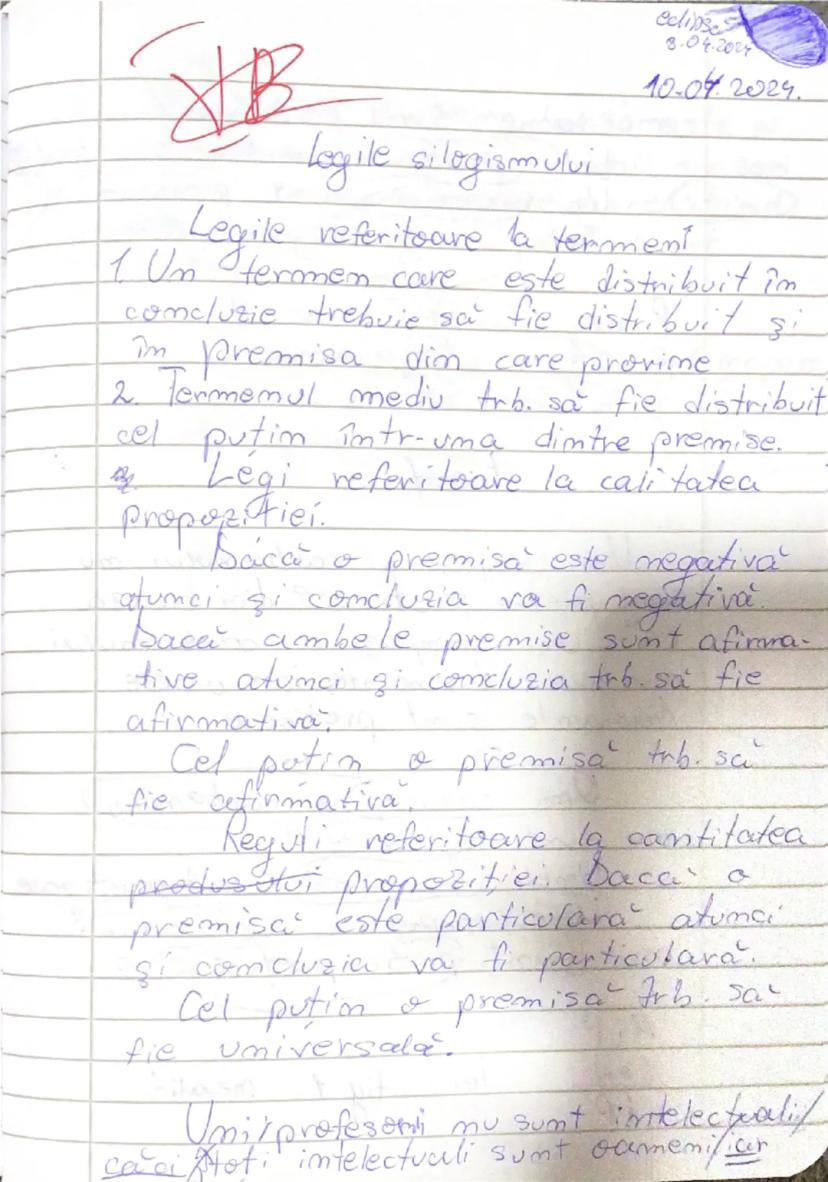 eclipsă
8.04.2024
10.04.2024.
Legile silogismului
Legile referitoare la termeni
1. Un termen care este distribuit în
concluzie trebuie să fie distribuit și
în premisa din care provine
2. Termenul mediu trb. să fie distribuit
cel puțin într-una dintre premise.
Legi referitoare la calitatea
propoziției.
Dacă o premisă este negativă
atunci și concluzia va fi negativă.
Dacă ambele premise sunt afirma-
tive atunci și concluzia trb. să fie
afirmativă.
Cel puțin o premisă trb. să
fie afirmativă.
Reguli referitoare la cantitatea
propoziției. Dacă o
premisă este particulară atunci
și concluzia va fi particulară.
Cel puțin o premisă trb. să
fie universală.
Unii profesori nu sunt intelectuali/
căci toți intelectuali sunt oameni/iar